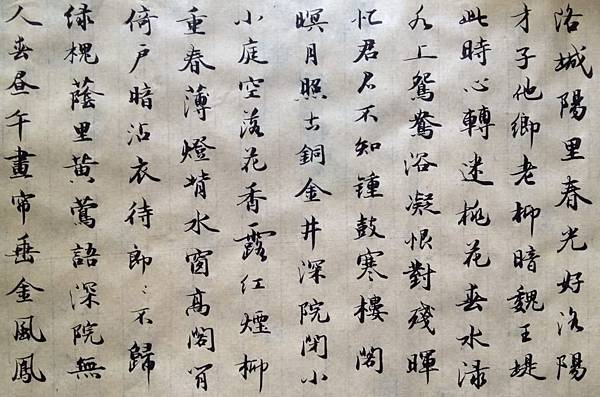 洛城陽里春光好洛陽
才子他鄉老柳暗魏王堤
此時心轉迷桃花春水渌
水上鴛鴦浴凝恨對殘暉
忆君君不知鍾鼓寒樓閣
暝月照古銅金井深院閉小
小庭空落花香露紅煙柳
重春薄燈背水窗高閣
倚户暗沾衣待郎〻不歸
绿槐蔭里黄鶯語深院無
人春昼午畫帘垂金風鳳